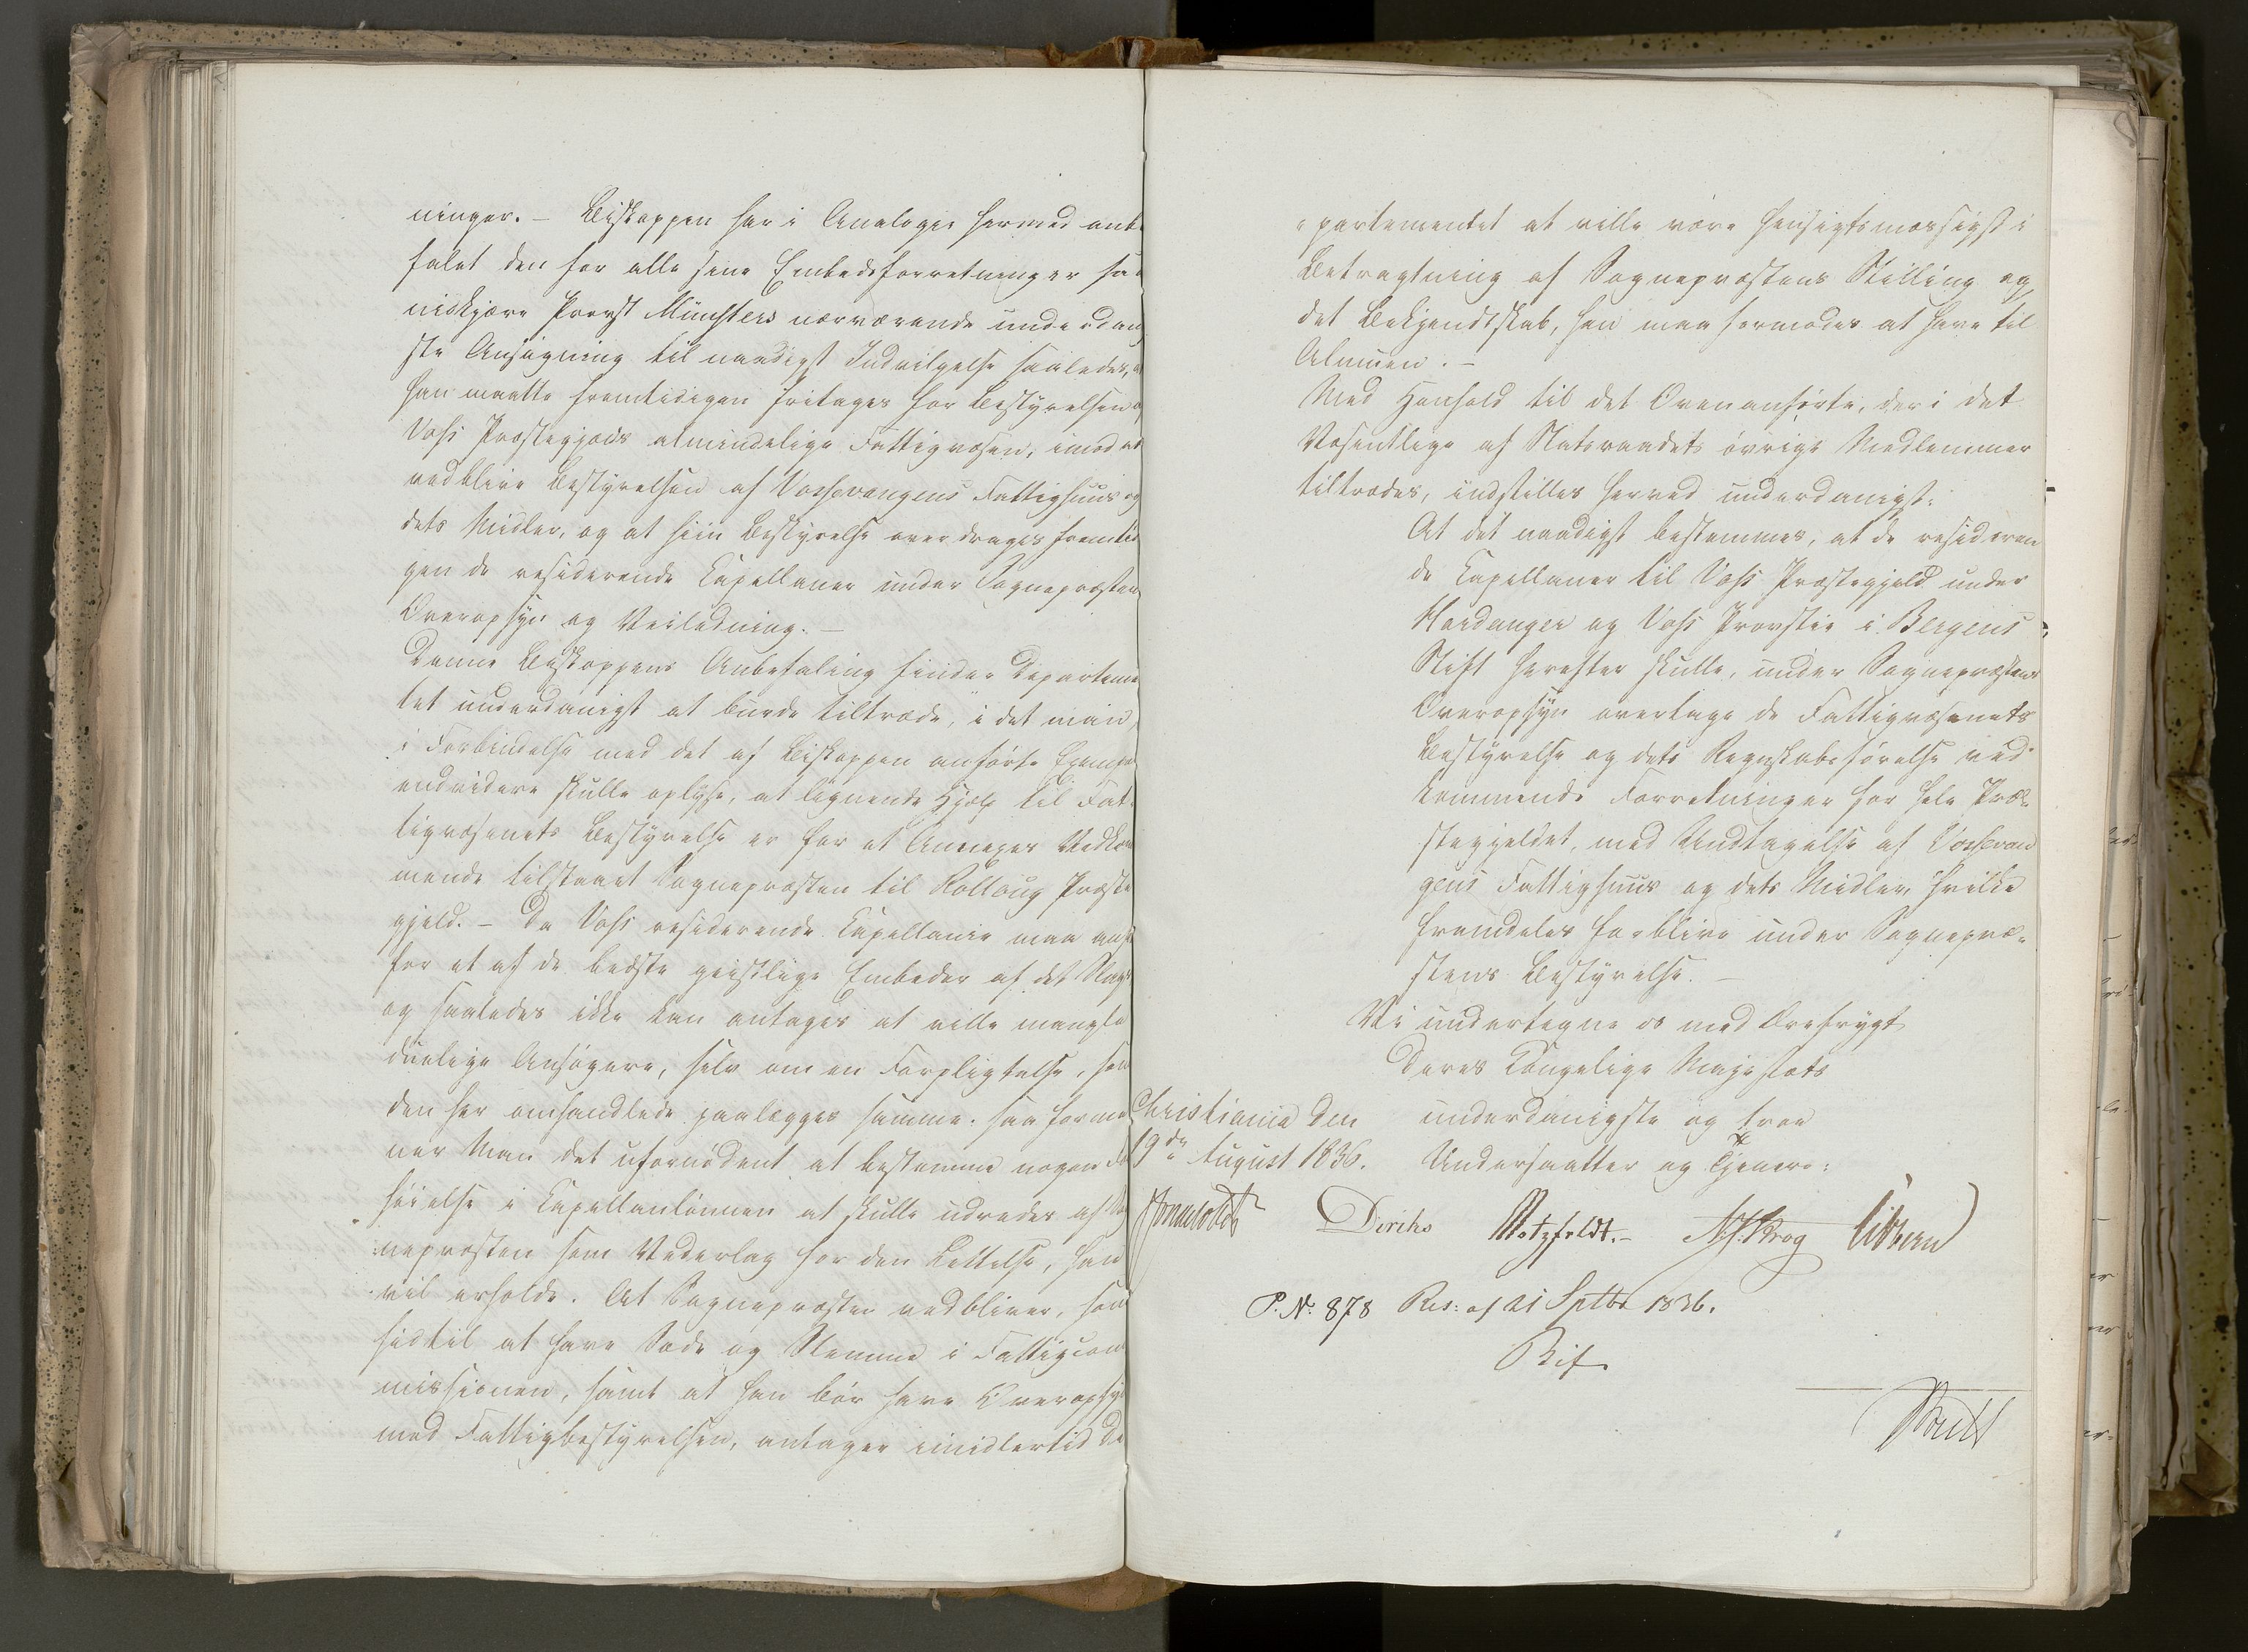 ninger. – Biskoppen har i Analogie hermed anbe
falet den for alle sine Embedsforretninger saa
nidkjære Provst Münsters nærværende underdanig
ste Ansøgning til naadigst Indvilgelse saaledes, at
han maatte fremtidigen fritages for Bestyrelsen af
Voss Præstegjelds almindelige Fattigvæsen, imod at
vedblive Bestyrelsen af Vossevangens Fattighuus og
dets Midler, og at hiin Bestyrelse overdrages fremtidi
gen de residerende Capellaner under Sognepræsten
Overopsyn og Veiledning. –
Denne Biskoppens Anbefaling finder Departemen
tet underdanigst at burde tiltræde, i det man
i Forbindelse med det af Biskoppen anførte Exempel
endvidere skulle oplyse, at lignende Hjælp til Fat-
tigvæsenets Bestyrelse er for et Annexes Vedkom
mende tilstaaet Sognepræsten til Rolloug Præste
gjeld. – Da Voss residerende Capellanie maa anse
for et af de bedste geistlige Embeder af det Slags
og saaledes ikke kan antages at ville mangle
duelige Ansøgere, selv om en Forpligtelse, som
den her omhandlede paalægges samme, saa forme
ner Man det ufornødent at bestemme nogen For
høielse i Capellanlønnen at skulle udredes af Sog
nepræsten som Vederlag for den Lettelse, han
vil erholde. At Sognepræsten vedbliver, som
hidtil at have Sæde og Stemme i Fattigcom
missionen, samt at han bør have Overopsyn
med Fattigbestyrelsen, antager imidlertid De
partementet at ville være hensigtsmæssigst i
Betragtning af Sognepræstens Stilling og
det Bekjendtskab, han maa formodes at have til
Almuen. –
Med Henhold til det Ovenanførte, der i det
Væsentlige af Statsraadets øvrige Medlemmer
tiltrædes, indstilles herved underdanigst:
At det naadigst bestemmes, at de resideren
de Capellaner til Voss Præstegjeld under
Hardanger og Voss Provstie i Bergens
Stift herefter skulle, under Sognepræstens
Overopsyn overtage de Fattigvæsenets
Bestyrelse og dets Regnskabsførelse ved-
kommende Forretninger for hele Præ-
stegjeldet, med Undtagelse af Vossevan
gens Fattighuus og dets Midler, hvilke
fremdeles forblive under Sognepræ-
stens Bestyrelse. –
Vi undertegne os med Ærefrygt
Deres Kongelige Majestæts
Christiania den underdanigste og troe
19de August 1836. Undersaatter og Tjenere:
Diriks Motzfeldt. – Krog Sibbern
P. N: 878 Res: af 21 Sptbr 1836.